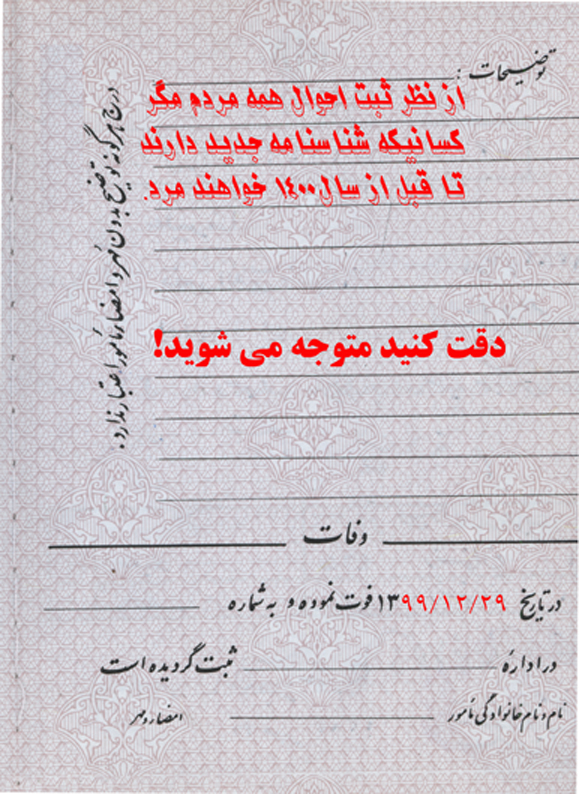 توضیحات:
از نظر ثبت احوال همه مردم مگر
کسانیکه شناسنامه جدید دارند
تا قبل از سال ۱۴۰۰ خواهند مرد.
درج هرگونه توضیح بدون مهر و امضاء مأمور اعتبار ندارد.
دقت کنید متوجه می شوید!
وفات
در تاریخ ۱۳۹۹/۱۲/۲۹ فوت نموده و به شماره
در اداره ثبت گردیده است
نام و نام خانوادگی مأمور امضاء و مهر